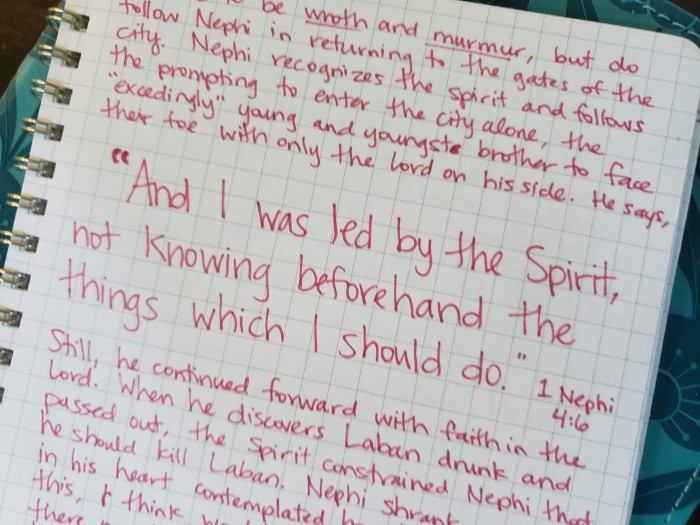 be wroth and
follow Nephi in returning murmur, but do
city. Nephi recognizes to the gates of the
the prompting to the spirit and follows
"excedingly" young enter the city alone, the
their foe and youngste brother to face
with only the Lord on his side. He says,
"And I was led by the Spirit,
not knowing beforehand the
things which I should do."
1 Nephi
4:6
Still, he continued forward with faith in the
Lord. When he discovers Laban drunk and
passed out, the Spirit constrained Nephi that
he should kill Laban. Nephi shrank
in his heart contemplated
this, & think
there